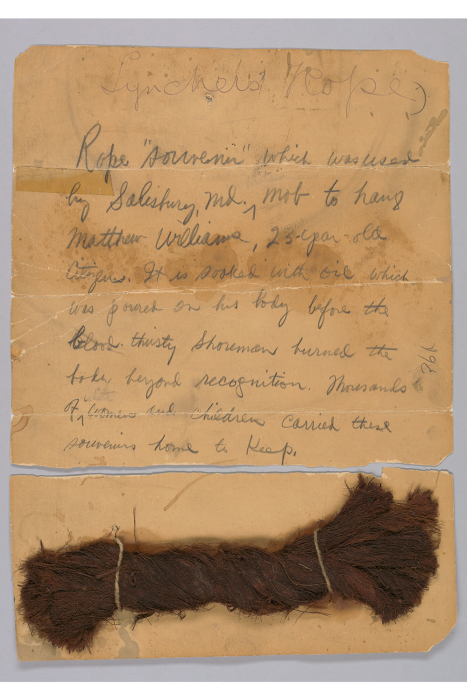 Lynchers' Rope)
Rope "souvenir" which was used
by Salisbury, Md., mob to hang
Matthew Williams, 23-year-old
Citizens. It is soaked with oil which
was poured on his body before the
blood thirsty Shoreman burned the
body beyond recognition. Thousands
of, women and children carried these
souvenirs home to keep.